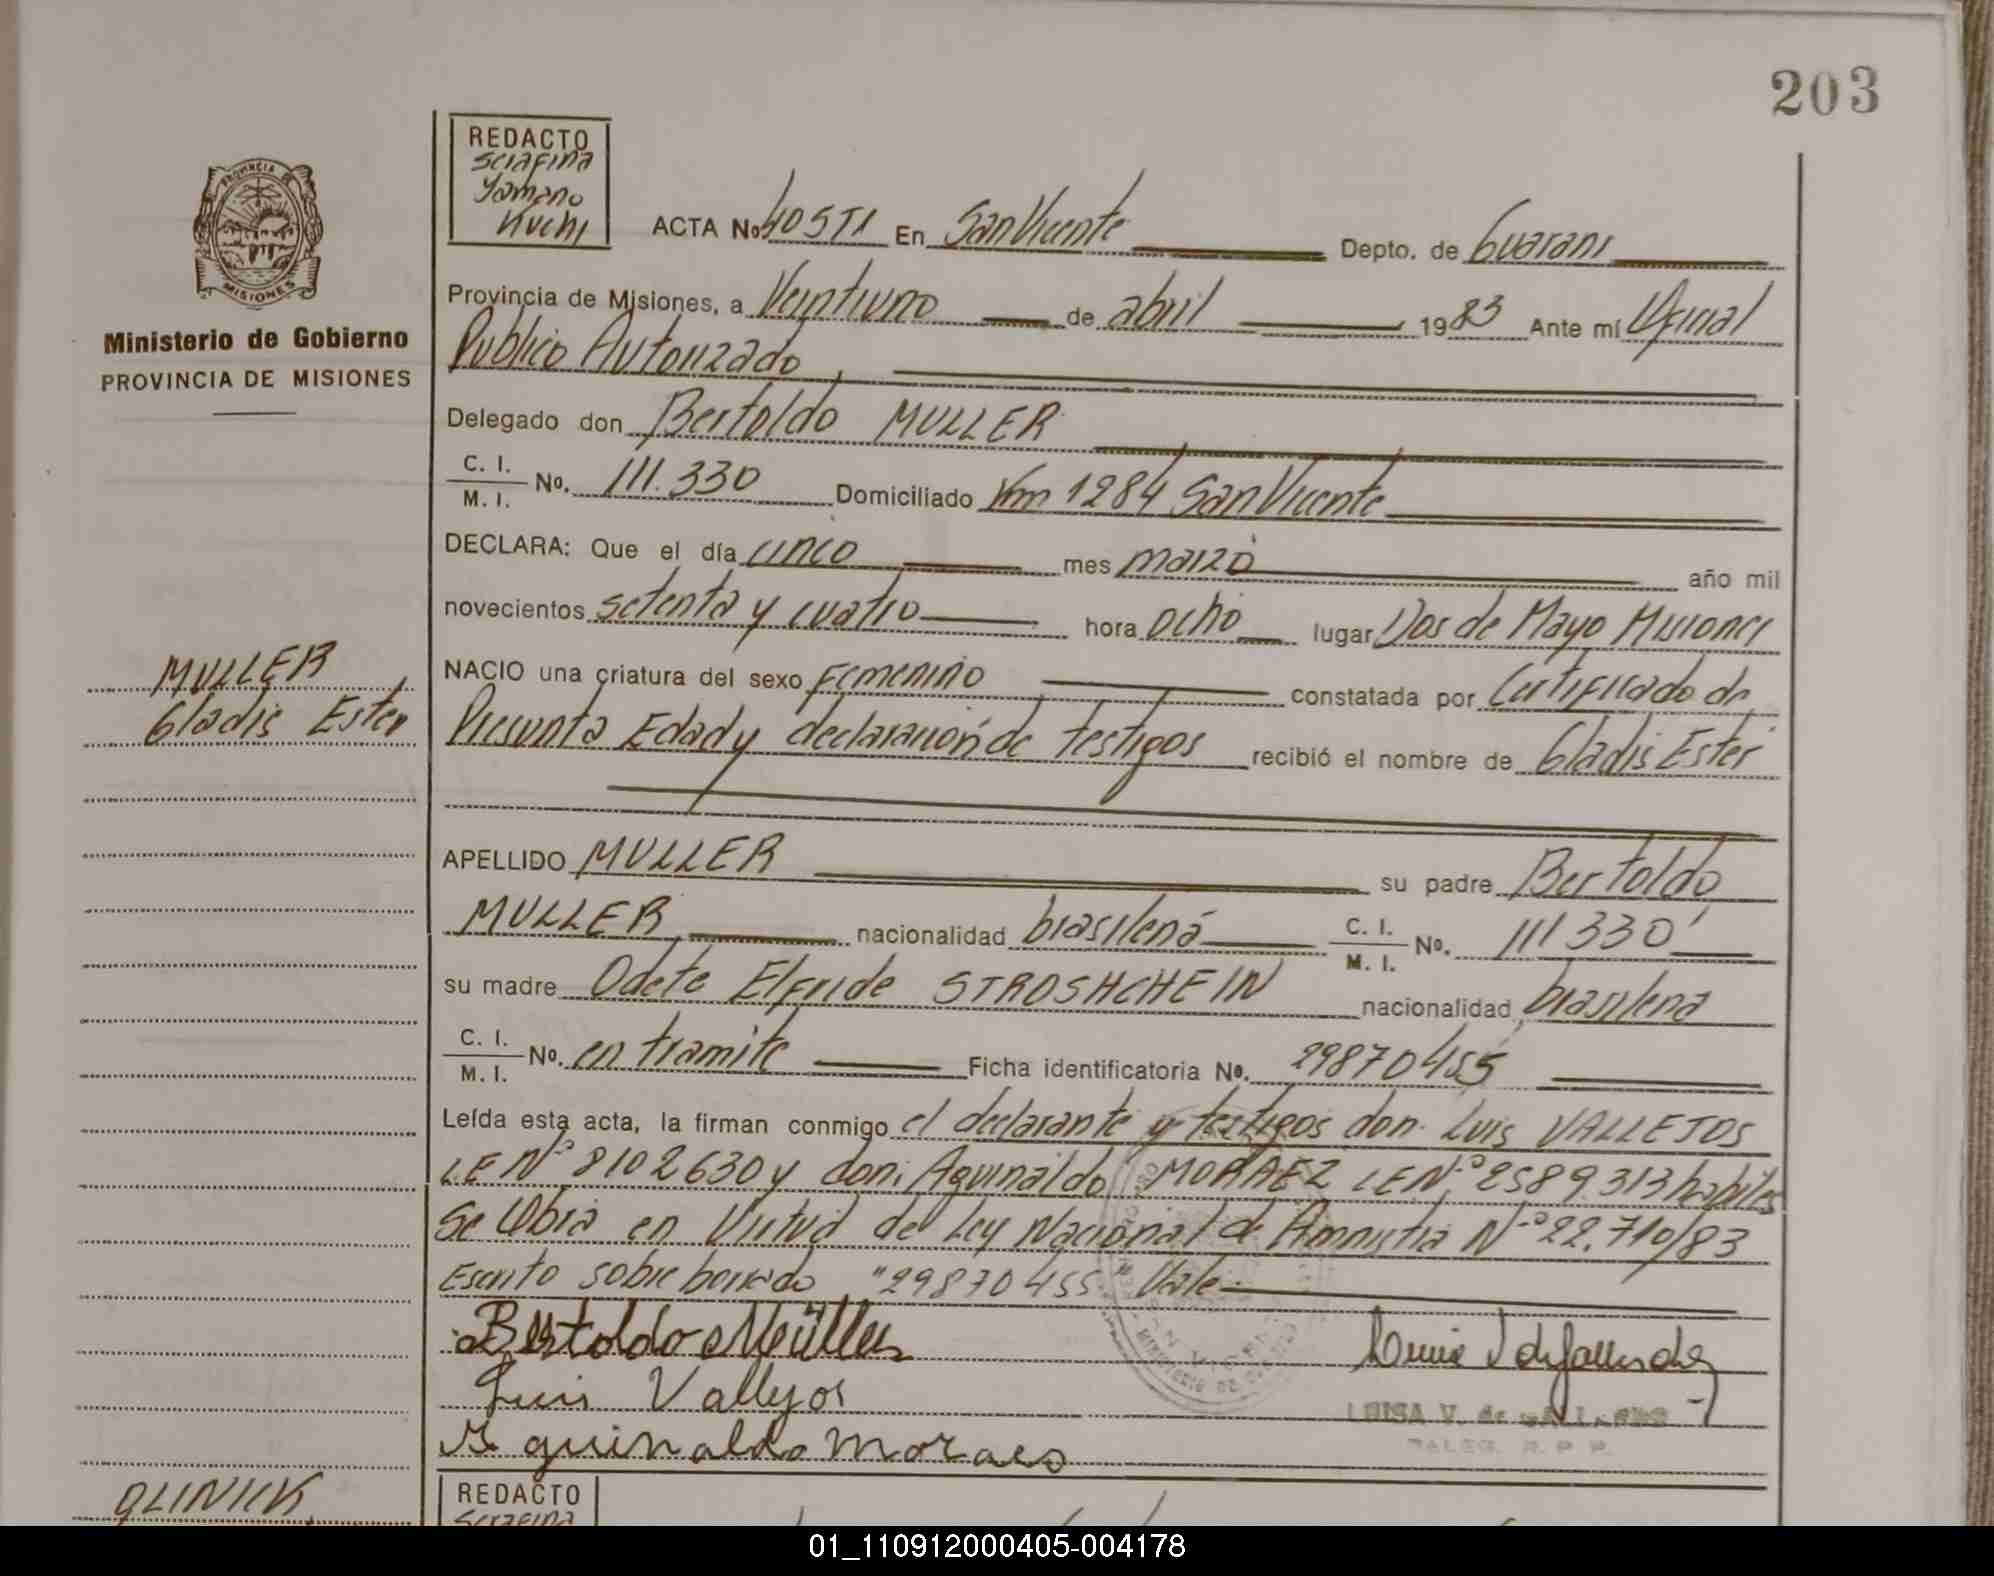 203
REDACTO
Serafina
Yamano
Kuchi
PROVINCIA DE
MISIONES
ACTA No 405T1 En San Vicente Depto. de Guarani
Provincia de Misiones, a Veintiuno de abril 1983 Ante mí Oficial
Publico Autorizado,
Ministerio de Gobierno
PROVINCIA DE MISIONES
Delegado don Bertoldo MULLER
C. I. / M. I. No. 111.330 Domiciliado Km 1284 San Vicente
DECLARA: Que el día cinco mes marzo año mil
novecientos setenta y cuatro hora ocho lugar Dos de Mayo Misiones
MULLER
Gladis Ester
NACIO una criatura del sexo femenino constatada por Certificado de
Presunta Edad y declaración de testigos recibió el nombre de Gladis Ester
APELLIDO MULLER su padre Bertoldo
MULLER nacionalidad brasilena C. I. / M. I. No. 111330
su madre Odete Elfride STROSHCHEIN nacionalidad brasilena
C. I. / M. I. No. en tramite Ficha identificatoria No. 29870455
Leída esta acta, la firman conmigo el declarante y testigos don. Luis VALLEJOS
LE Nº 8102630 y don. Aguinaldo MORAEZ LE Nº 2589.313 habiles
Se labra en Virtud de Ley Nacional de Amnistia Nº 22.710/83
Escrito sobre borrado "29870455" Vale
Bertoldo Müller
Luis Vallejos
Aguinaldo Moraes
LUISA V. de
QLINICK
REDACTO
Serafina
01_110912000405-004178